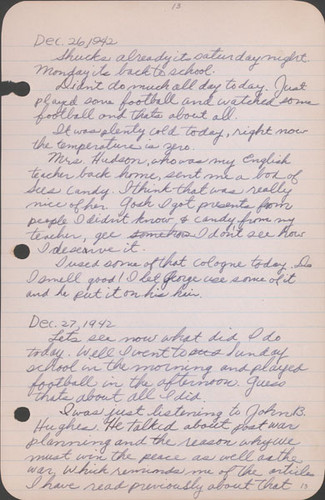 13
Dec. 26, 1942
Shucks already its saturday night
Monday its back to school.
Didn't do much all day today. Just
played some football and watched some
football and thats about all.
It was plenty cold today, right now
the temperature is zero.
Mrs. Hudson, who was my English
teacher back home, sent me a box of
Sees Candy. I think that was really
nice of her. Gosh I got presents from
people I didn't know, & candy from my
teacher, gee I don't see how
I deserve it.
I used some of that cologne today. Do
I smell good! I let George use some of it
and he put it on his hair.
Dec. 27, 1942
Lets see now what did I do
today. Well I went to Sunday
school in the morning and played
football in the afternoon. Guess
thats about all I did.
I was just listening to John B.
Hughes. He talked about post war
planning and the reason why we
must win the peace as well as the
war, Which reminds me of the article
I have read previously about that
13